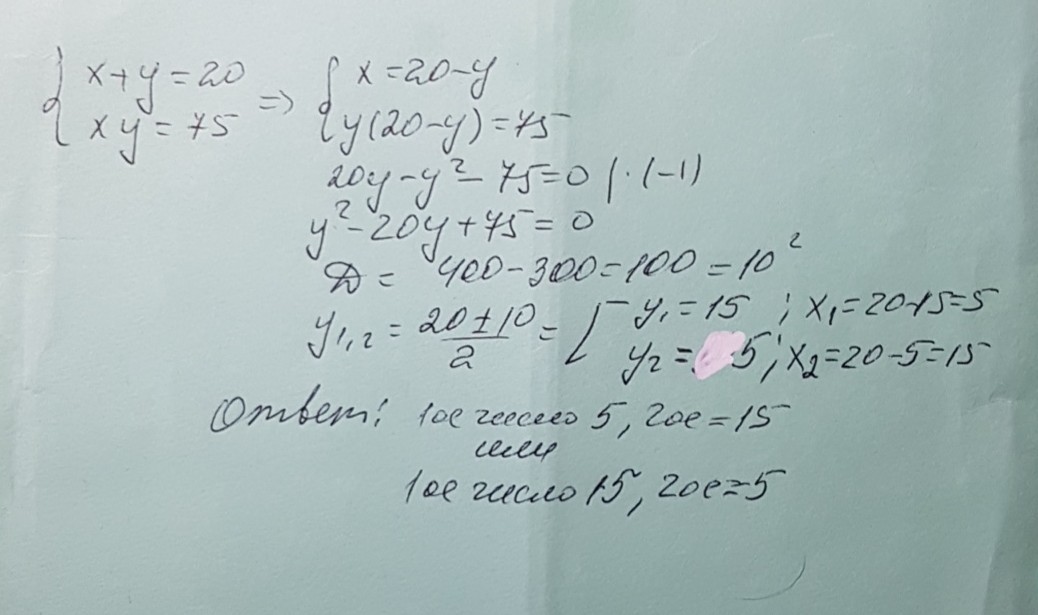 { x+y=20 => { x=20-y
{ xy=75 { y(20-y)=75
20y-y²-75=0 |·(-1)
y²-20y+75=0
D= 400-300=100=10²
y₁,₂ = (20±10)/2 = [ y₁=15 ; x₁=20-15=5
y₂= 5; x₂=20-5=15
Ответ: 1ое число 5, 2ое=15
или
1ое число 15, 2ое=5